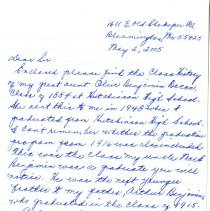 1611 E Old Shakopee Rd
Bloomington, Mn 55425
May 2, 2005
Dear Sir:
Enclosed please find the Class History
of my great aunt Olive Benjamin Bacon,
Class of 1889 at Hutchinson High School.
She sent this to me in 1948 when I
graduated from Hutchinson High School.
I can't remember whether the graduation
program from 1916 was also included.
This was the class my uncle Mark
Benjamin was a graduate you will
notice. He was the next younger
brother to my father, Archie Benjamin,
who graduated in the class of 1915.